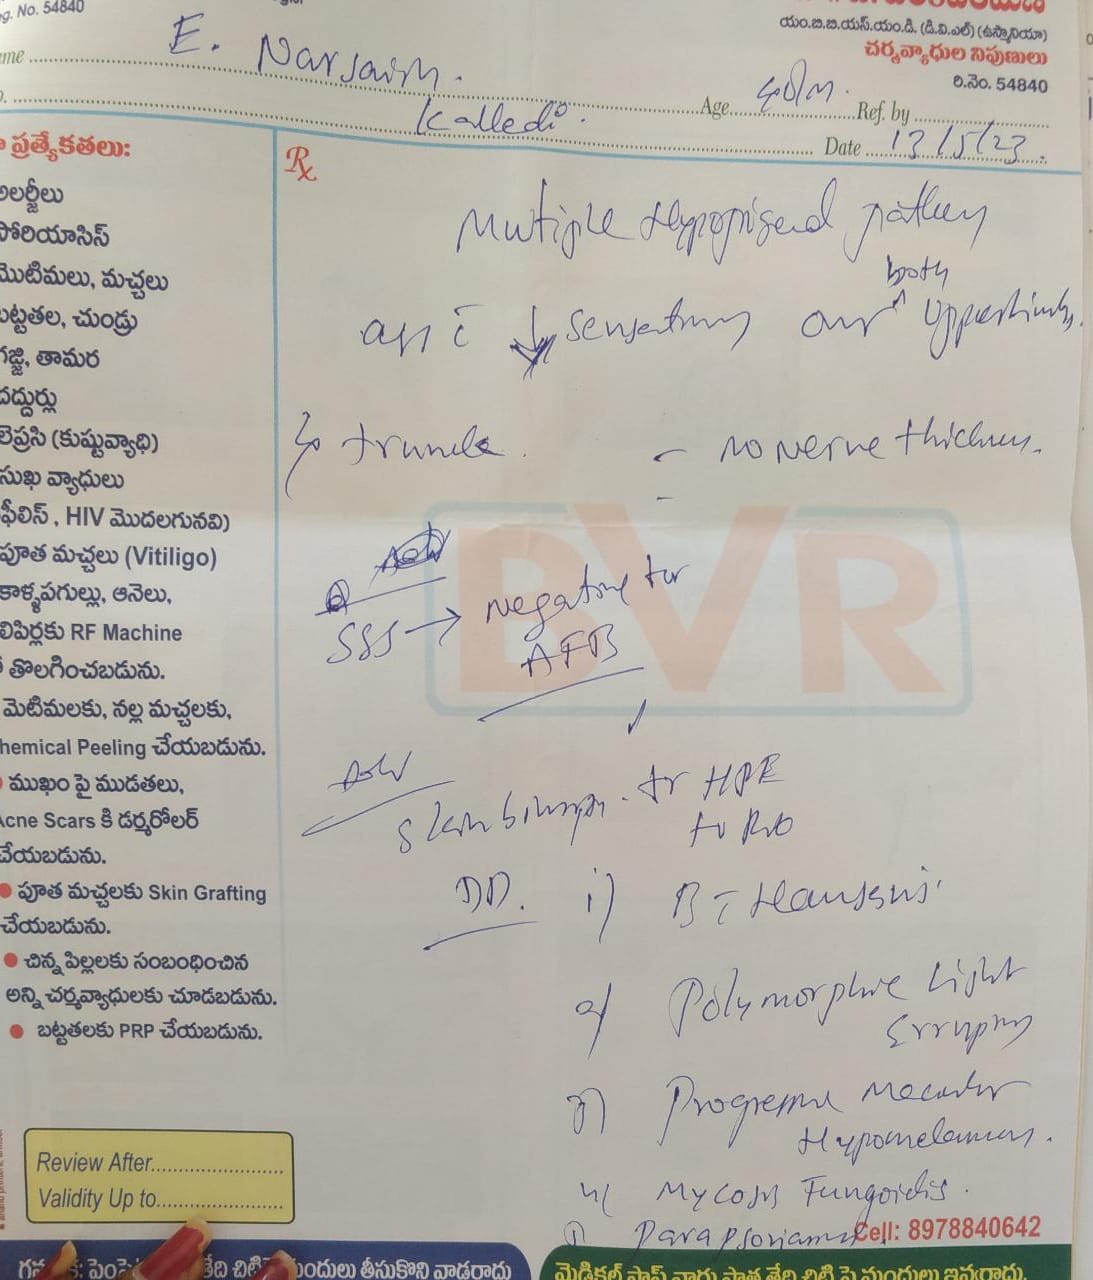 g. No. 54840
యం.బి.బి.యస్.యం.డి. (డి.వి.ఎల్) (ఉస్మానియా)
చర్మవ్యాధుల నిపుణులు
రి.నెం. 54840
me E. Narsaim.
Age 40/m. Ref. by
Kalledi.
Date 13/5/23
ప్రత్యేకతలు:
Rx
అలర్జీలు
సోరియాసిస్
మొటిమలు, మచ్చలు
బట్టతల, చుండ్రు
గజ్జి, తామర
దద్దుర్లు
లెప్రసి (కుష్టువ్యాధి)
సుఖ వ్యాధులు
ఫిలిస్, HIV మొదలగునవి)
పూత మచ్చలు (Vitiligo)
కాళ్ళపగుల్లు, ఆనెలు,
లిపిర్లకు RF Machine
తొలగించబడును.
మెటిమలకు, నల్ల మచ్చలకు,
hemical Peeling చేయబడును.
ముఖం పై ముడతలు,
Acne Scars కి డర్మరోలర్
చేయబడును.
పూత మచ్చలకు Skin Grafting
చేయబడును.
చిన్న పిల్లలకు సంబంధించిన
అన్ని చర్మవ్యాధులకు చూడబడును.
బట్టతలకు PRP చేయబడును.
Multiple Hypopigend
both
↓ sensatung over
trunck. - no nerve thickness.
BVR
SSS → negative for
AFB
Adv
Skin biopsy. for HPE
to R/o
DD. 1) BT Hansen's
2) Polymorphic Light
Erruption
3) Progressive Macular
Hypomelanosis.
4) Mycosis Fungoidis.
5) Parapsoriasis
Review After
Validity Up to
Cell: 8978840642
చిటిపై మందులు తీసుకొని వాడరాదు
మెడికల్ షాప్ వారు పాత తేది చిటి పై మందులు ఇవ్వరాదు.